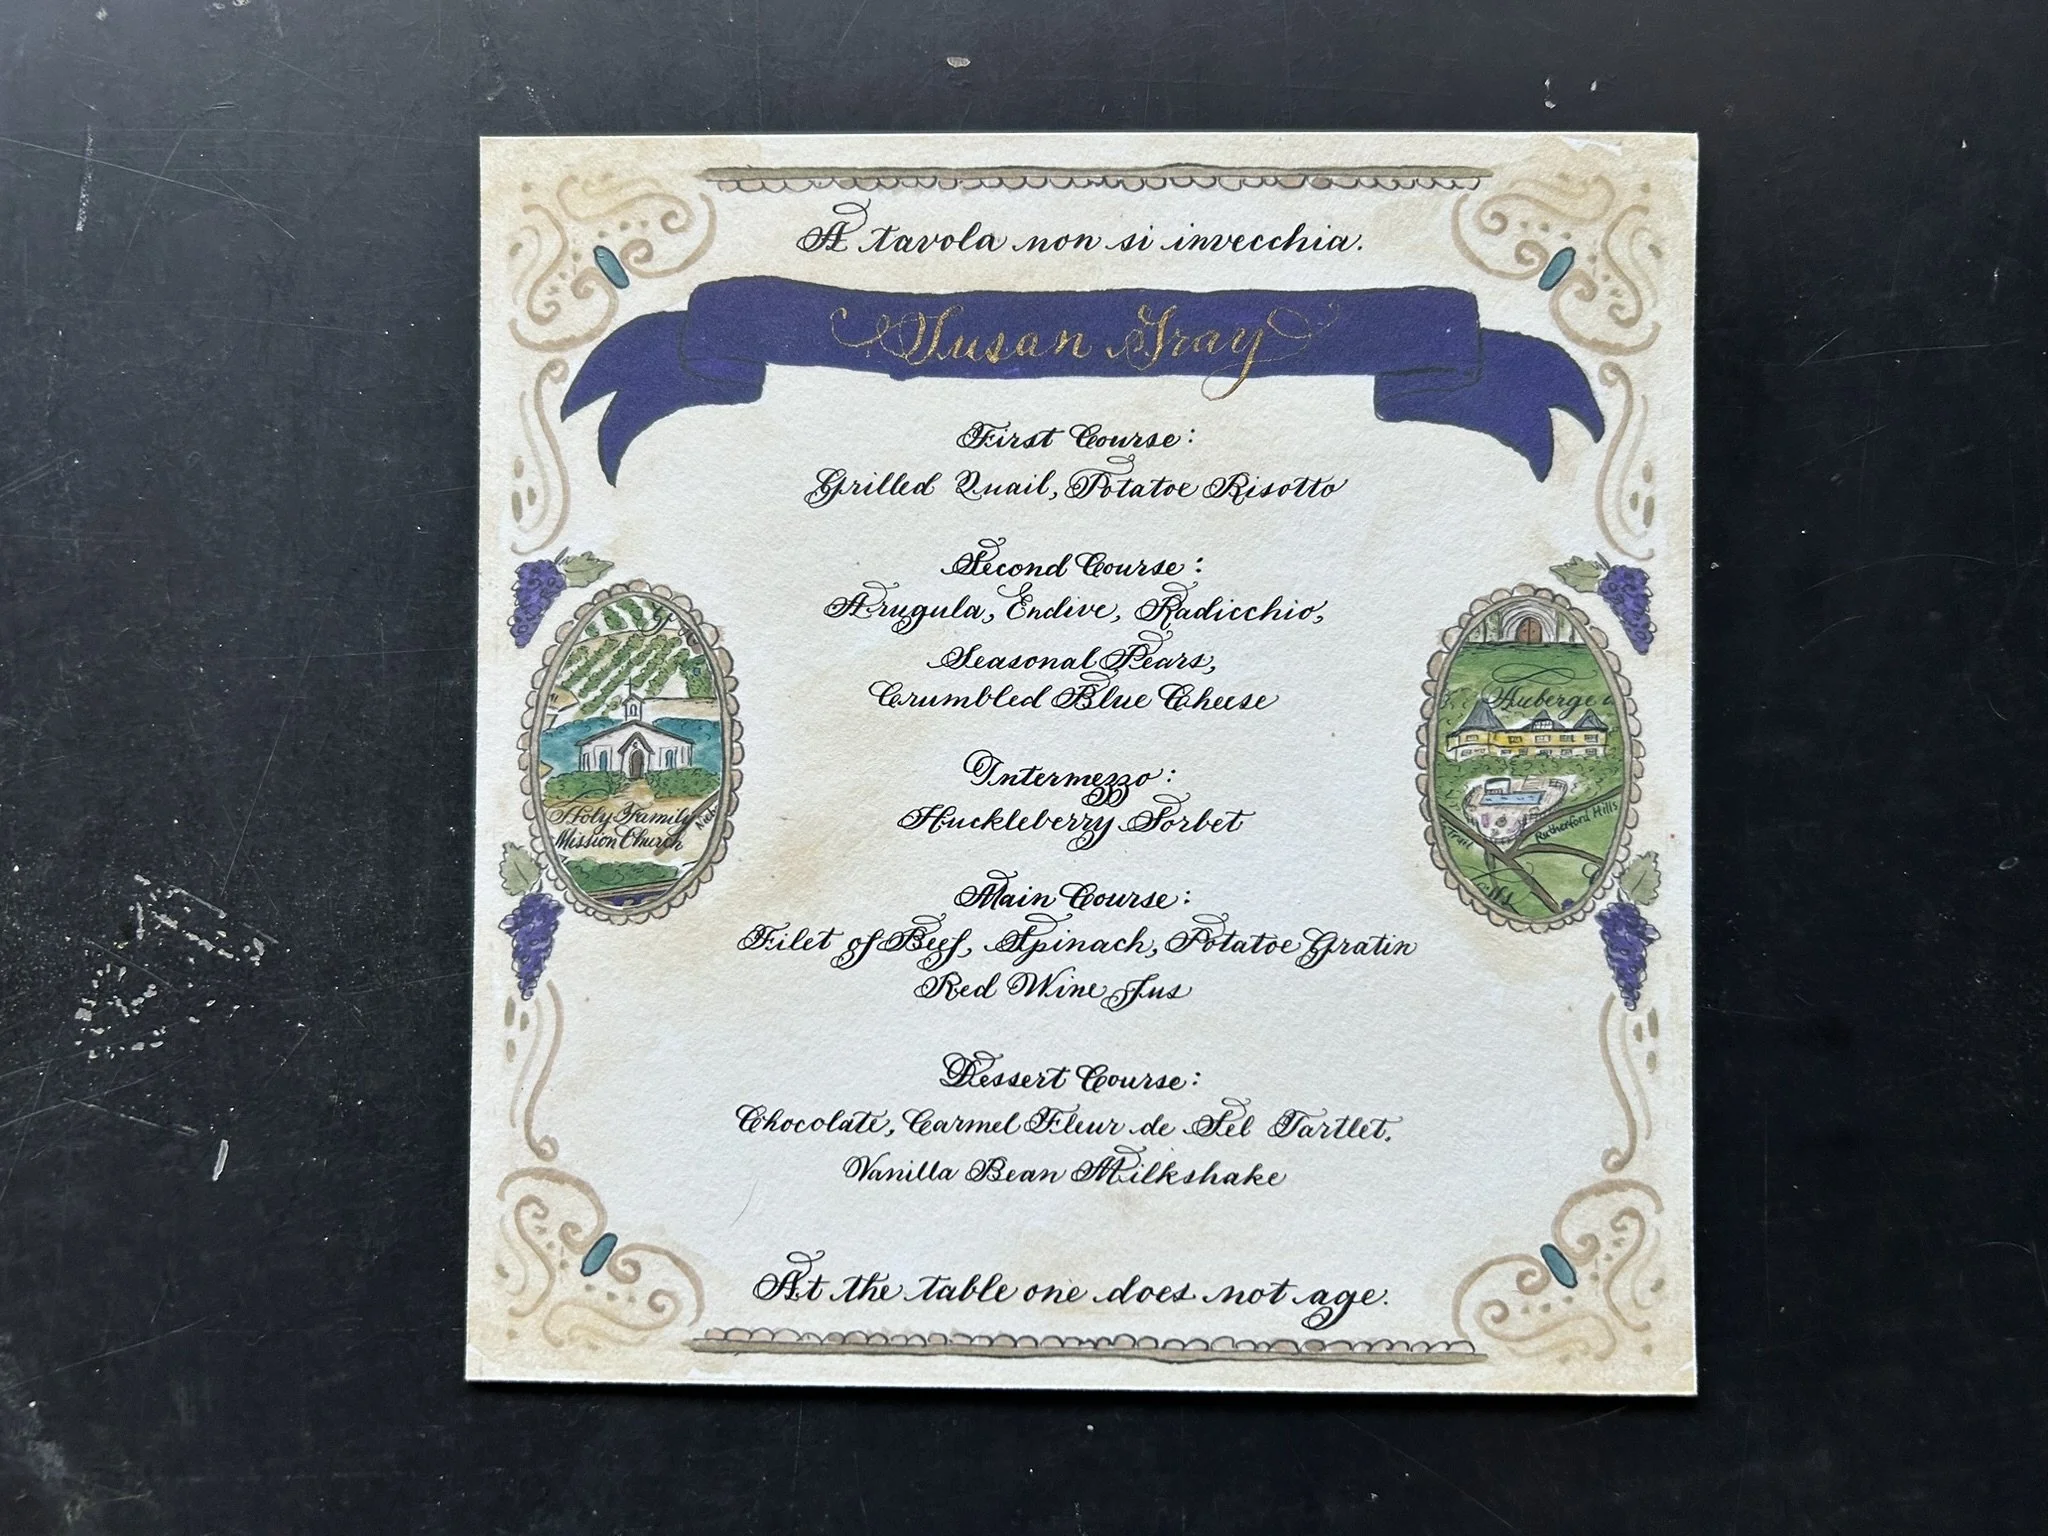 A tavola non si invecchia.
Susan Gray
First Course:
Grilled Quail, Potatoe Risotto
Second Course:
Arugula, Endive, Radicchio,
Seasonal Pears,
Crumbled Blue Cheese
Intermezzo:
Huckleberry Sorbet
Main Course:
Filet of Beef, Spinach, Potatoe Gratin
Red Wine Jus
Dessert Course:
Chocolate, Carmel Fleur de Sel Tartlet,
Vanilla Bean Milkshake
At the table one does not age.
Holy Family
Mission Church
Auberge
Rutherford Hills
Trail